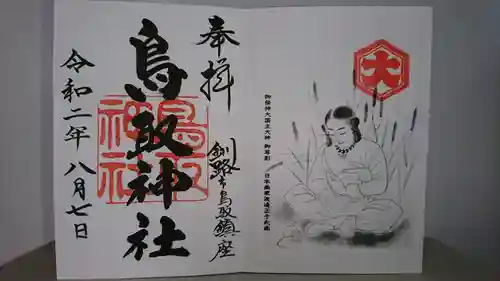 奉拝
釧路市鳥取鎮座
鳥取神社
令和二年八月七日
鳥取
神社
大
御祭神大国主大神 御尊影